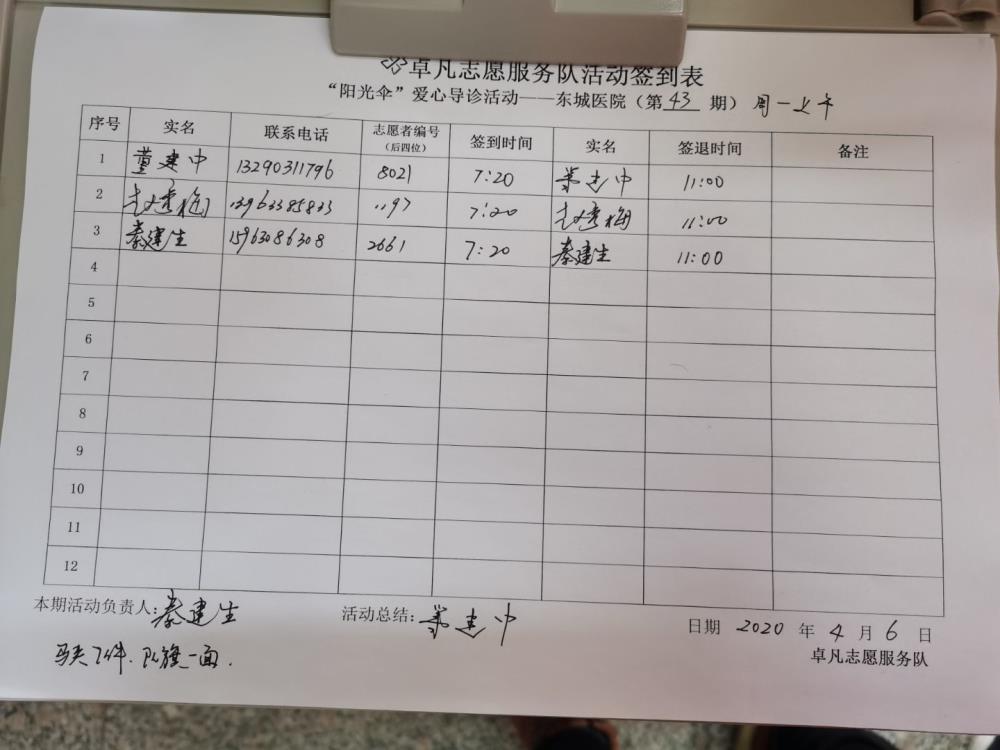 卓凡志愿服务队活动签到表
“阳光伞”爱心导诊活动——东城医院（第43期）周一上午
序号 实名 联系电话 志愿者编号（后四位） 签到时间 实名 签退时间 备注
1 董建中 13290311796 8021 7:20 董建中 11:00
2 赵秀梅 13963385833 1197 7:20 赵秀梅 11:00
3 秦建生 15963086308 2661 7:20 秦建生 11:00
4
5
6
7
8
9
10
11
12
本期活动负责人:秦建生 活动总结:董建中 日期 2020 年 4 月 6 日
马夹7件.队旗一面. 卓凡志愿服务队